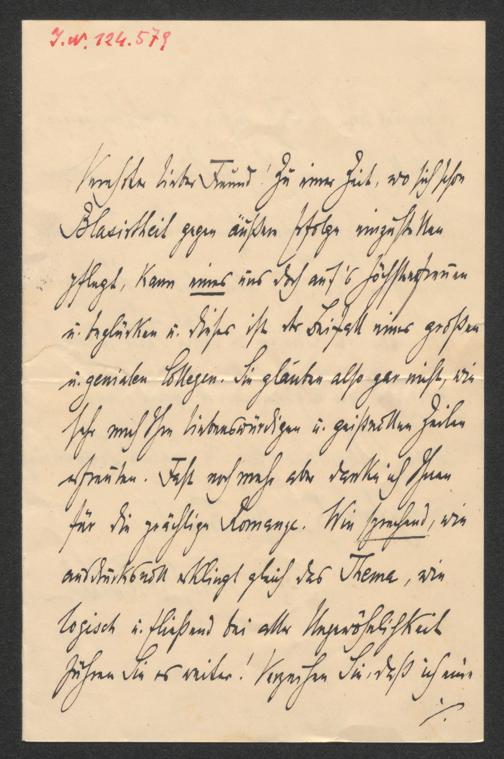 J.N. 124.579
Verehrter lieber Freund! Zu einer Zeit, wo sich schon
Blasirtheit gegen äußere Erfolge einzustellen
pflegt, kann eines uns doch auf's Höchste erfreuen
u. beglücken u. dieses ist der Beifall eines großen
u. genialen Collegen. Sie glauben also gar nicht, wie
sehr mich Ihre liebenswürdigen u. geistvollen Zeilen
erfreuten. Fast noch mehr aber danke ich Ihnen
für die prächtige Romanze. Wie sprechend, wie
ausdrucksvoll erklingt gleich das Thema, wie
logisch u. fließend bei aller Ungewöhnlichkeit
führen Sie es weiter! Verzeihen Sie, daß ich eine